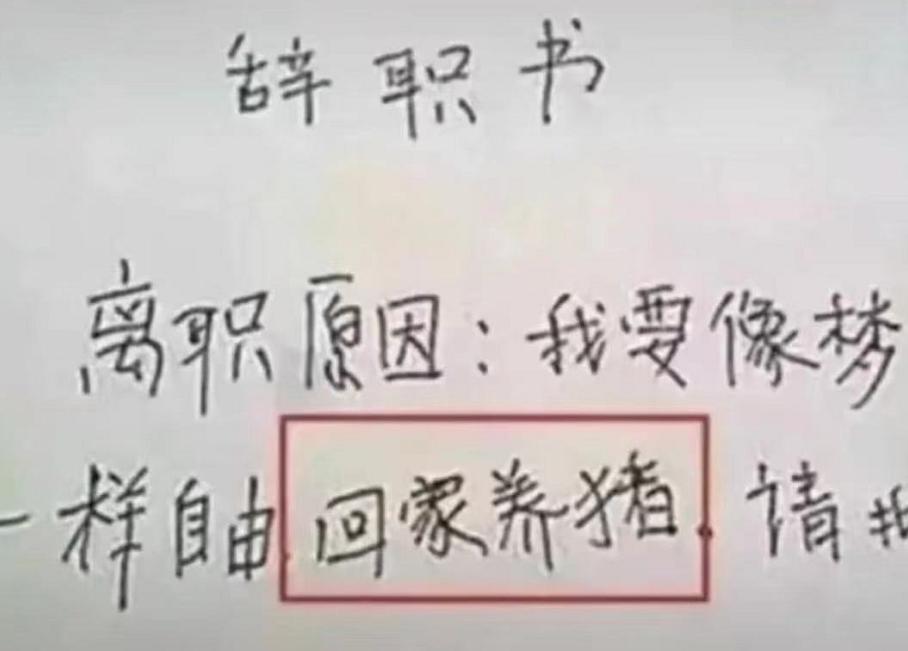 辞职书
离职原因:我要像梦
一样自由回家养猪.请